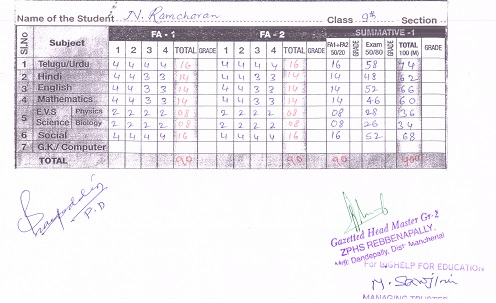 Name of the Student N. Ramcharan Class 9th Section
Sl.No Subject FA - 1 FA - 2 SUMMATIVE -1
1 2 3 4 TOTAL GRADE 1 2 3 4 TOTAL GRADE FA1+FA2 50/20 GRADE Exam 50/80 GRADE TOTAL 100 (M) GRADE
1 Telugu/Urdu 4 4 4 4 16 4 4 4 4 16 16 58 74
2 Hindi 4 4 3 3 14 4 4 3 3 14 14 48 62
3 English 4 4 3 3 14 4 4 3 3 14 14 52 66
4 Mathematics 4 4 3 3 14 4 4 3 3 14 14 46 60
5 E.V.S Science Physics 2 2 2 2 08 2 2 2 2 08 08 28 36
Biology 2 2 2 2 08 2 2 2 2 08 08 26 34
6 Social 4 4 4 4 16 4 4 4 4 16 16 52 68
7 G.K./ Computer
TOTAL 90 90 90 400
P.D
Gazetted Head Master Gr-2
ZPHS REBBENAPALLY,
Mdl: Dandepally, Dist: Mancherial
For HELP FOR EDUCATION
MANAGING TRUSTEE